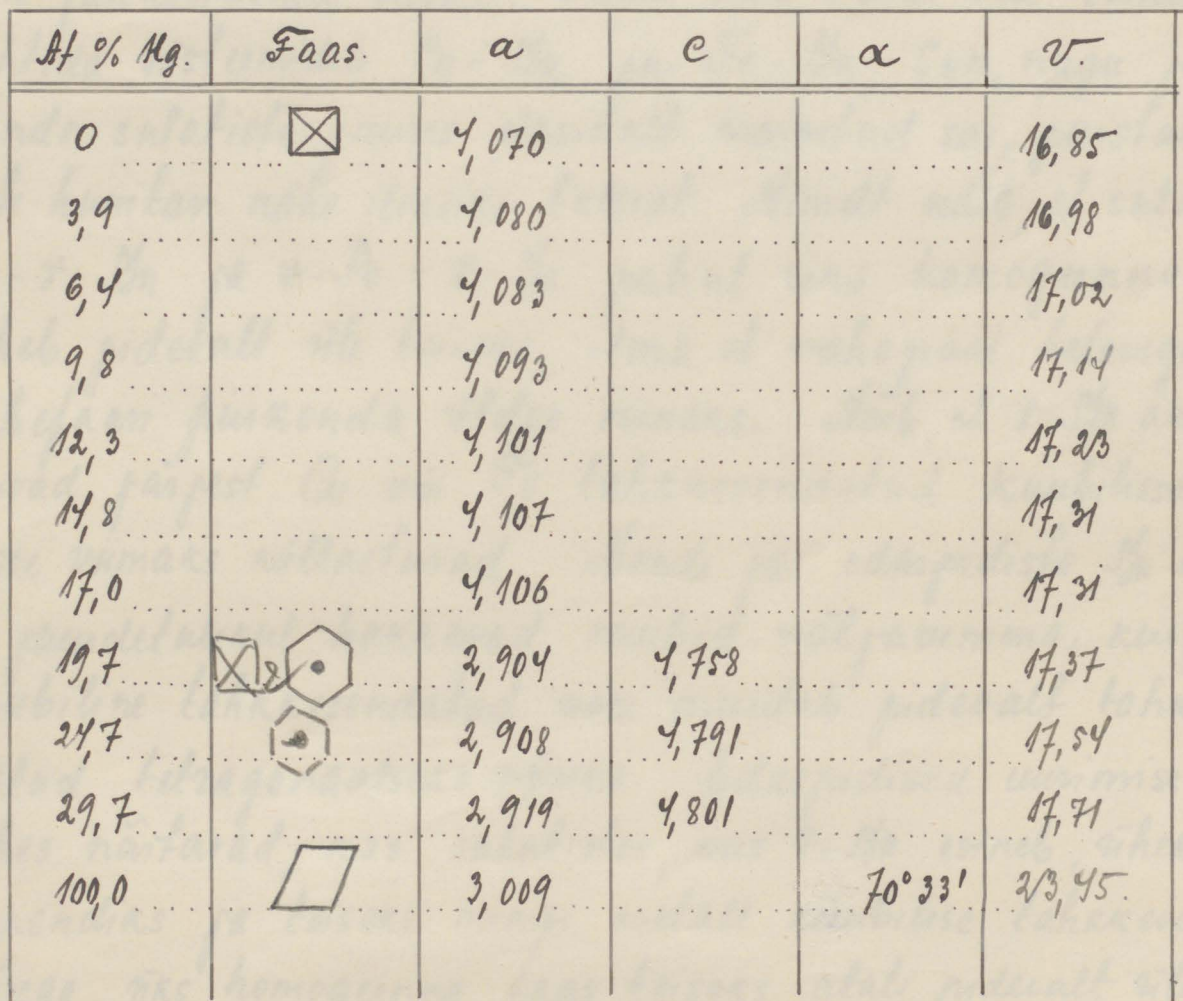 At % Hg. Faas. a c α v.
0 4,070 16,85
3,9 4,080 16,98
6,4 4,083 17,02
9,8 4,093 17,14
12,3 4,101 17,23
14,8 4,107 17,31
17,0 4,106 17,31
19,7 2,904 4,758 17,37
24,7 2,908 4,791 17,54
29,7 2,919 4,801 17,71
100,0 3,009 70°33' 23,45.